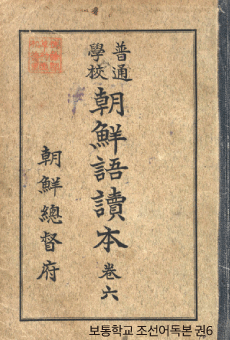 普通
學校
朝鮮語讀本 卷六
朝鮮總督府
보통학교 조선어독본 권6